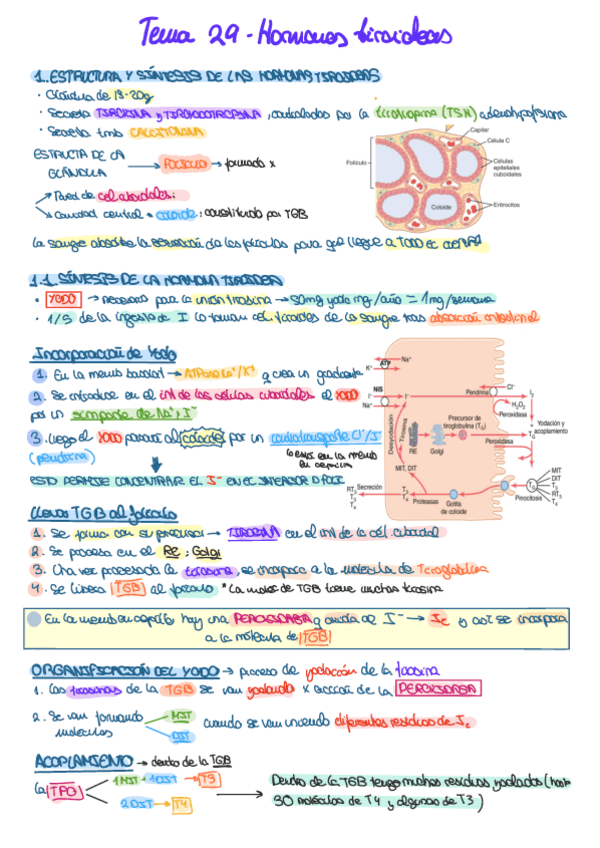 Tema 29 - Hormonas tiroideas
1. ESTRUCTURA Y SÍNTESIS DE LAS HORMONAS TIROIDEAS
· Glándula de 15-20g
· Secreta TIROXINA y TRIYODOTIRONINA, controladas por la tirotropina (TSH) adenohipofisaria
· Secreta tmb CALCITONINA
ESTRUCTA DE LA
GLÁNDULA → FOLÍCULO → formado x
→ Pared de cel cuboidales:
→ cavidad central = coloide: constituido por TGB
Capilar
Célula C
Folículo
Células
epiteliales
cuboidales
Coloide
Eritrocitos
La sangre absorbe la secreción de los folículos para que llegue a TODO EL CUERPO
1.1. SÍNTESIS DE LA HORMONA TIROIDEA
· YODO → necesario para la unión tirosina → 50mg yodo mg/año = 1mg/semana
· 1/5 de la ingesta de I lo toman cél. tiroides de la sangre tras absorción intestinal
Incorporación de Yodo
1. En la memb basal → ATPasa Na+/K+ y crea un gradiente
2. Se introduce en el int de las células cuboidales el YODO
por un simporte de Na+, I-
3. Luego el YODO pasará al coloide por un contratransporte Cl-/I-
(pendrina)
ESTO PERMITE CONCENTRAR EL I- EN EL INTERIOR D FOLIC
Na+
ATP
K+
NIS
I-
I-
Na+
Pendrina
Cl-
I2
H2O2
Peroxidasa
Desyodación
Tirosina
Precursor de
tiroglobulina (TG)
RE
Golgi
TG
Yodación y
acoplamiento
Peroxidasa
MIT, DIT
MIT
DIT
TG
T3
RT3
T4
Pinocitosis
Secreción
RT3
T3
T4
T3
T4
Proteasas
Gotita
de coloide
Llevar TGB al folículo
1. Se forma con su precursor → TIROSINA en el int de la cél. cuboidal
2. Se procesa en el RE y Golgi
3. Una vez procesada la tirosina, se incorpora a la molécula de Tiroglobulina
4. Se libera TGB al folículo * La moléc de TGB tiene muchas tirosina
En la memb en cepillo hay una PEROXIDASA y oxida al I- → I2 y así se incorpora
a la molécula de TGB
ORGANIFICACIÓN DEL YODO → proceso de yodación de la tirosina
1. Las tirosinas de la TGB se van yodando x acción de la PEROXIDASA
2. Se van formando
moléculas
MIT
DIT
cuando se van uniendo diferentes residuos de I2
ACOPLAMIENTO → dentro de la TGB
La TPO
1 MIT + 1 DIT → T3
2 DIT → T4
Dentro de la TGB tengo muchos residuos yodados (hasta
30 moléculas de T4 y algunas de T3)